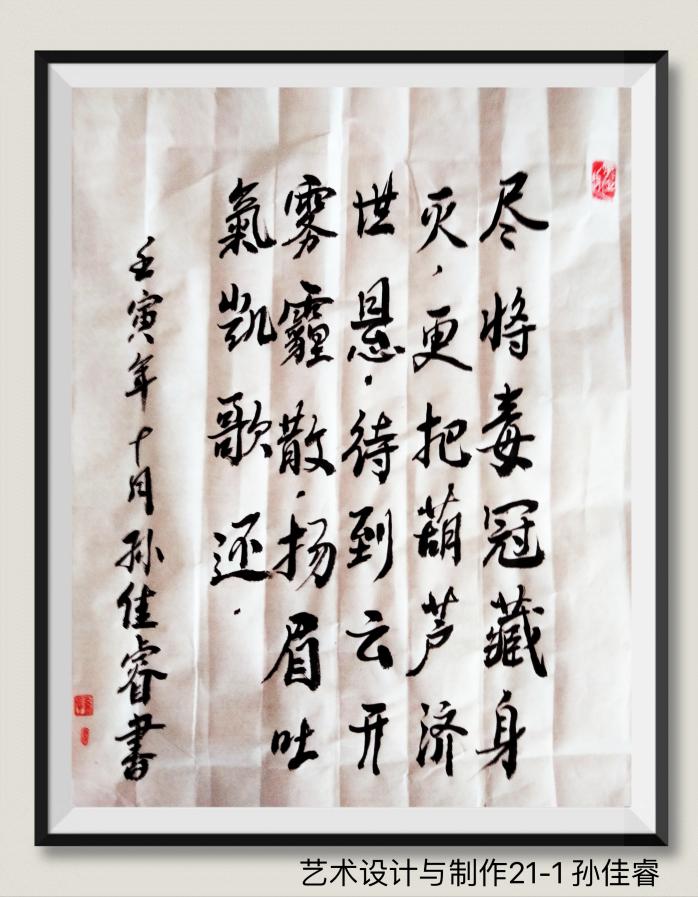 尽将毒冠藏身
灭，更把葫芦济
世悬。待到云开
雾霾散。扬眉吐
氣凯歌还。
壬寅年十月孙佳睿書
艺术设计与制作21-1 孙佳睿